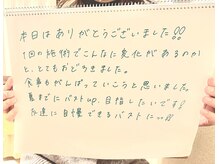 本日はありがとうございました!!
1回の施術でこんなに変化があるのか
と、とてもおどろきました。
食事もがんばっていこうと思いました。
夏までにバストup目指したいです!
友達に自慢できるバストに!!